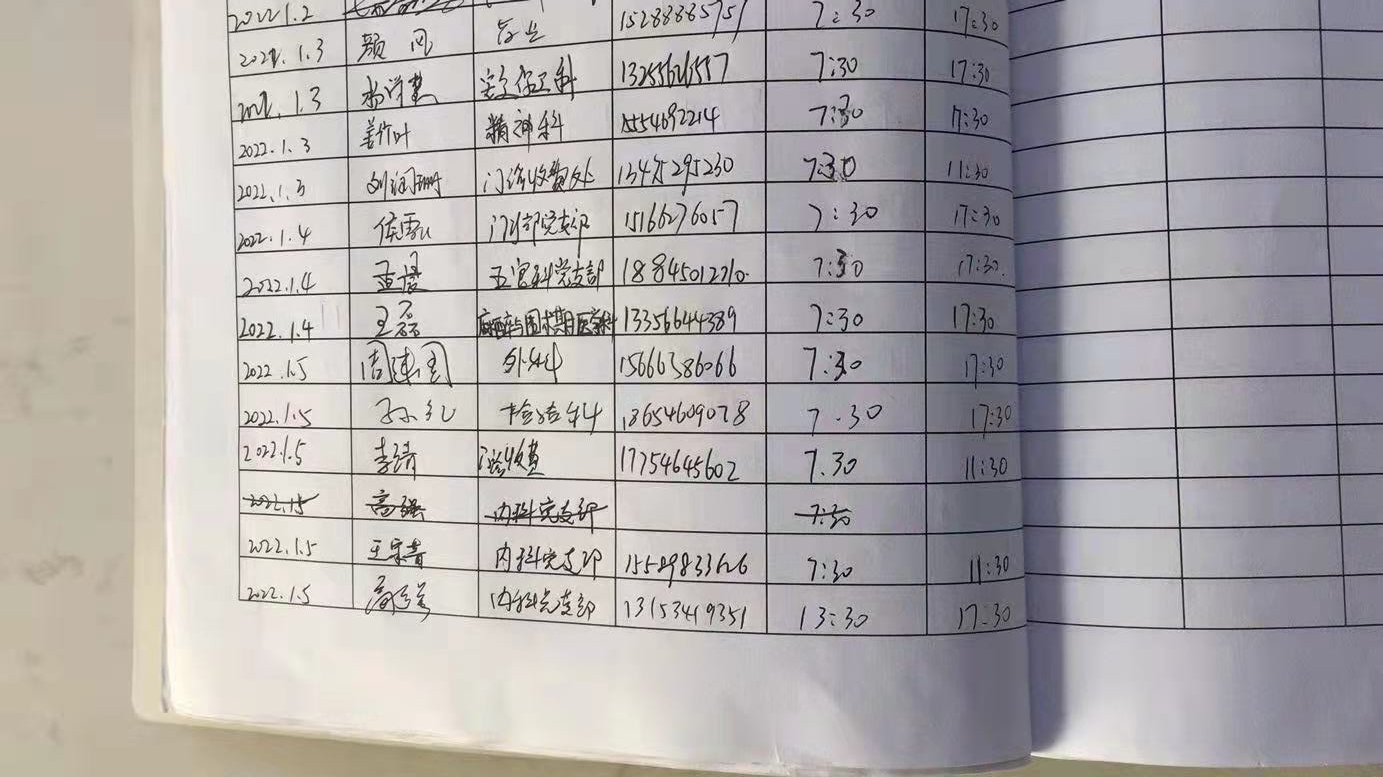 2022.1.2 15288885751 7:30 17:30
2022.1.3 颜风 7:30 17:30
2022.1.3 7:30 17:30
2022.1.3 姜竹叶 精神科 15554692214 7:30 17:30
2022.1.3 门诊收费处 13475295230 7:30 11:30
2022.1.4 门诊部党支部 15166276057 7:30 17:30
2022.1.4 五官科党支部 18845012710 7:30 17:30
2022.1.4 王磊 麻醉与围术期医学科 13356644389 7:30 17:30
2022.1.5 外科 15666386066 7:30 17:30
2022.1.5 孙礼 检验科 18654609078 7.30 17:30
2022.1.5 李靖 门诊收费 17754645602 7.30 11:30
2022.1.5 高强 内科党支部 7:30
2022.1.5 内科党支部 7:30 11:30
2022.1.5 高强 内科党支部 13153419351 13:30 17:30